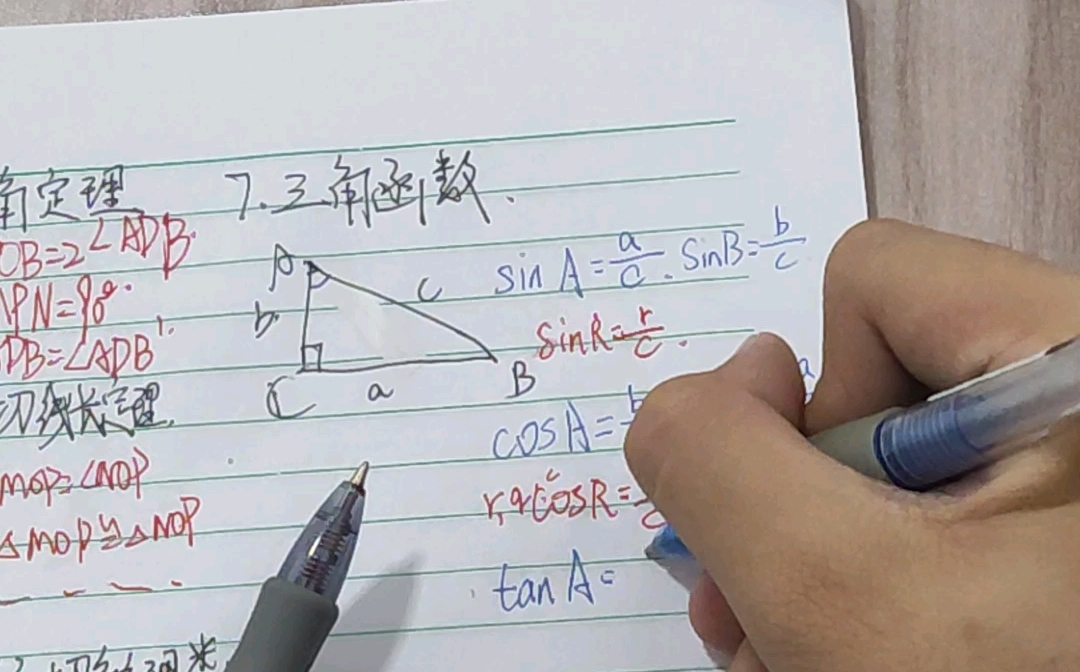 角定理
OB=2∠ADB.
APN=90°.
DB=∠ADB
切线长定理.
MOP=∠NOP
△MOP≌△NOP
7.三角函数.
A
b
c
C
a
B
sin A=a/c. sinB=b/c
sinR=r/c.
cosA=b
cosR=
tan A=